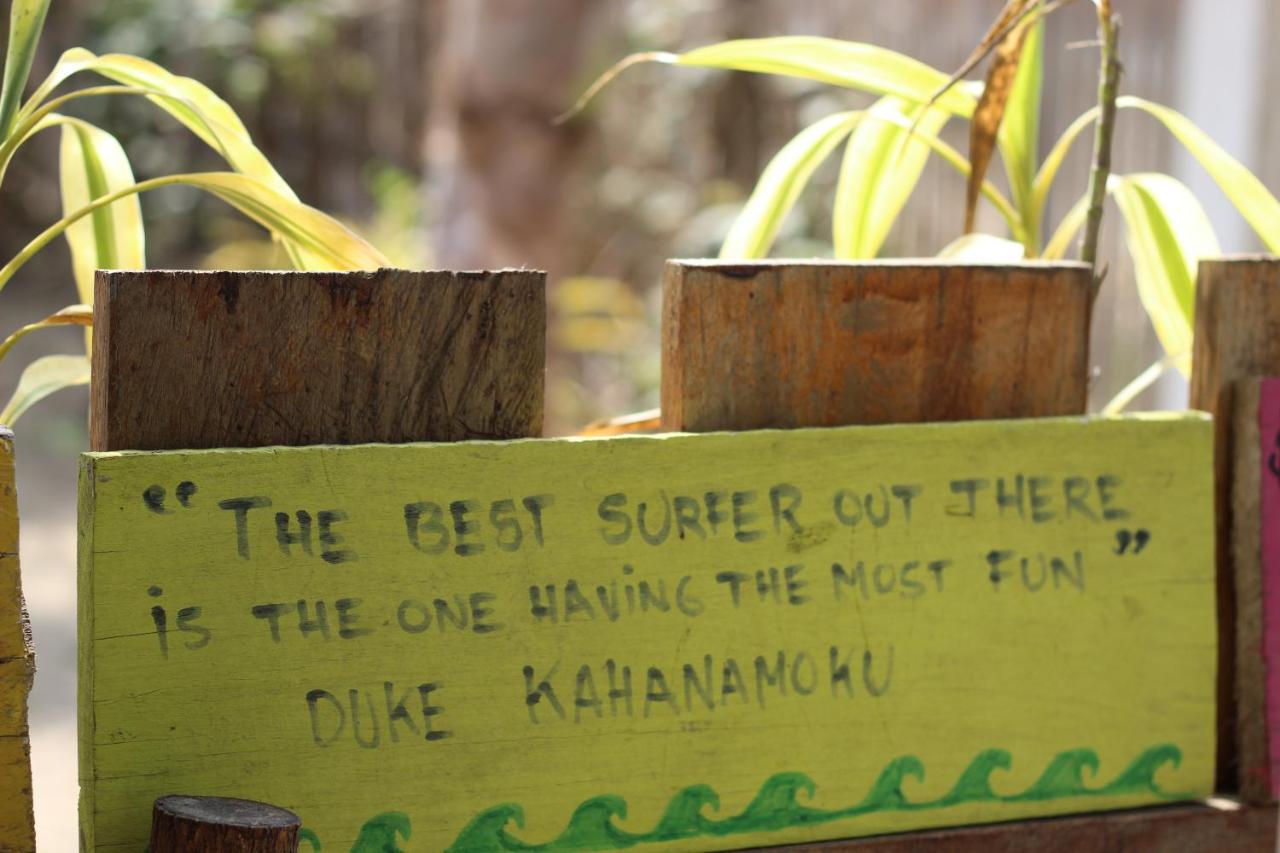 “THE BEST SURFER OUT THERE
is THE ONE HAViNG THE MOST FUN”
DUKE KAHANAMOKU